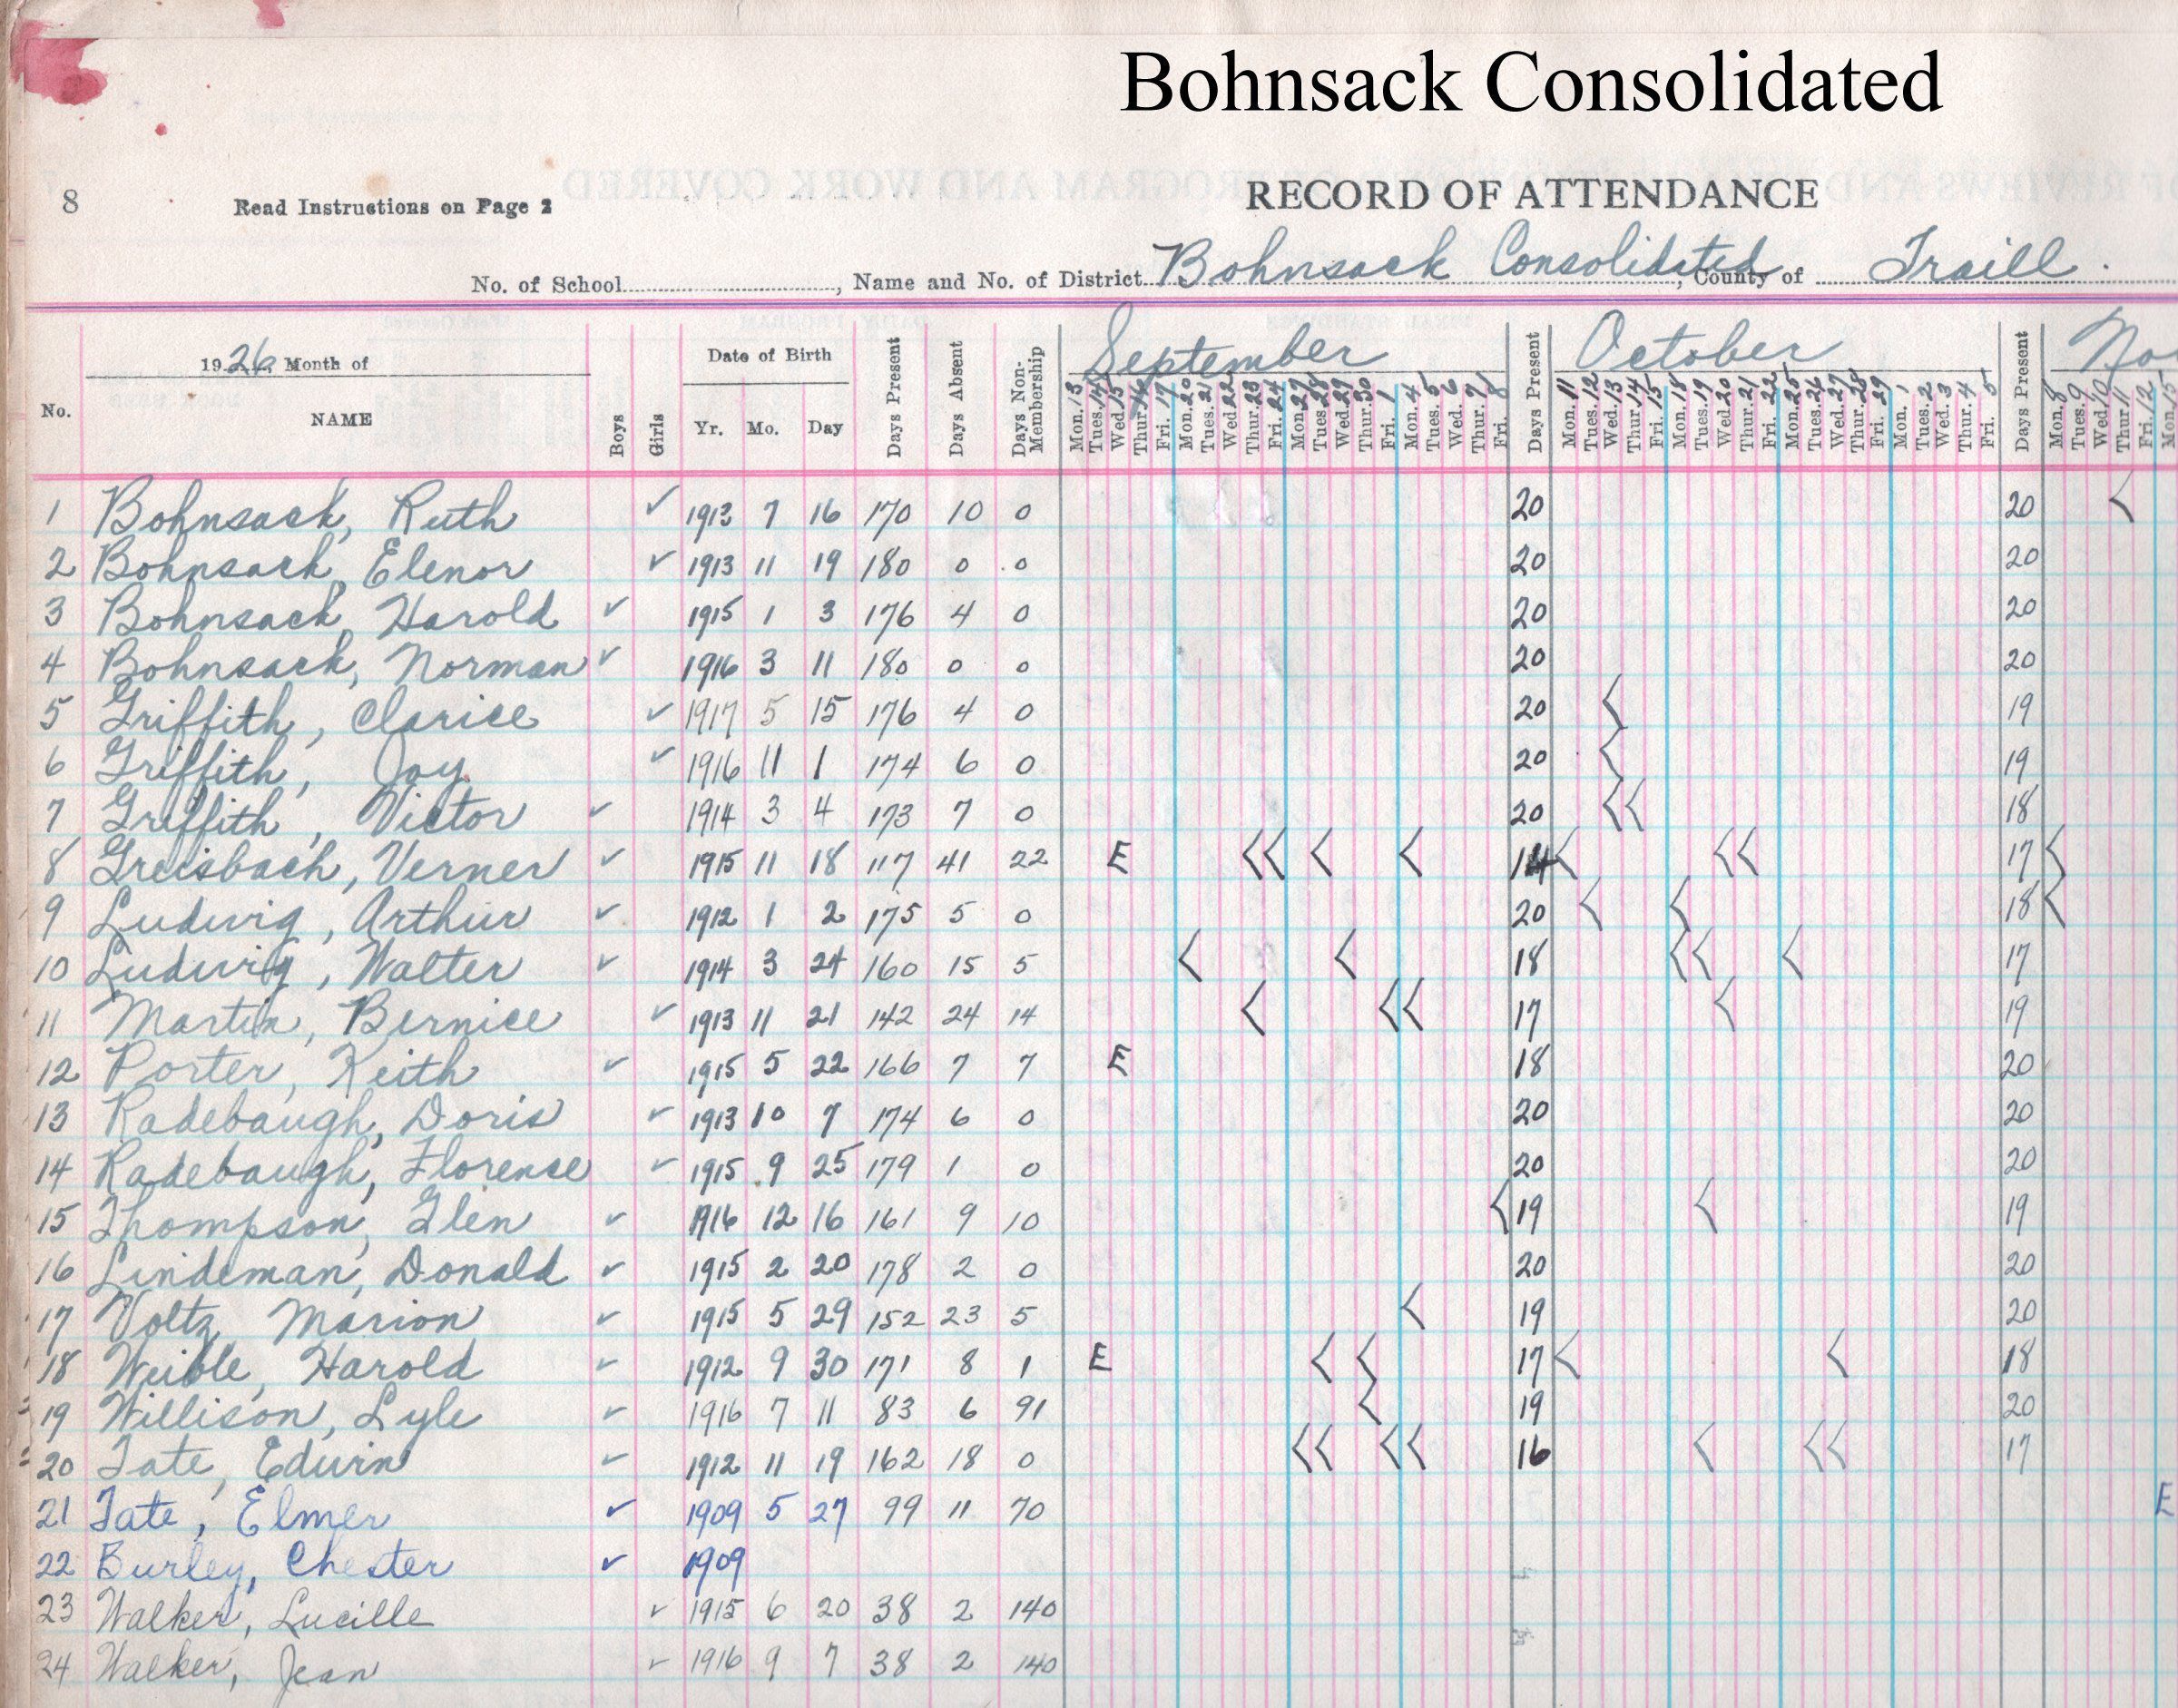 Bohnsack Consolidated
8 Read Instructions on Page 2 RECORD OF ATTENDANCE
No. of School, Name and No. of District Bohnsack Consolidated, County of Traill.
1926 Month of Date of Birth September October
No. NAME Boys Girls Yr. Mo. Day Days Present Days Absent Days Non-Membership Mon. 13 Tues. 14 Wed. 15 Thur. 16 Fri. 17 Mon. 20 Tues. 21 Wed. 22 Thur. 23 Fri. 24 Mon. 27 Tues. 28 Wed. 29 Thur. 30 Fri. 1 Mon. 4 Tues. 5 Wed. 6 Thur. 7 Fri. 8 Days Present Mon. 11 Tues. 12 Wed. 13 Thur. 14 Fri. 15 Mon. 18 Tues. 19 Wed. 20 Thur. 21 Fri. 22 Mon. 25 Tues. 26 Wed. 27 Thur. 28 Fri. 29 Mon. 1 Tues. 2 Wed. 3 Thur. 4 Fri. 5 Days Present Mon. 8 Tues. 9 Wed. 10 Thur. 11 Fri. 12 Mon. 15
1 Bohnsack, Ruth ✓ 1913 7 16 170 10 0 20 20
2 Bohnsack, Elenor ✓ 1913 11 19 180 0 0 20 20
3 Bohnsack, Harold ✓ 1915 1 3 176 4 0 20 20
4 Bohnsack, Norman ✓ 1916 3 11 180 0 0 20 20
5 Griffith, Clarice ✓ 1917 5 15 176 4 0 20 19
6 Griffith, Joy ✓ 1916 11 1 174 6 0 20 19
7 Griffith, Victor ✓ 1914 3 4 173 7 0 20 18
8 Greisbach, Verner ✓ 1915 11 18 117 41 22 E 14 17
9 Ludwig, Arthur ✓ 1912 1 2 175 5 0 20 18
10 Ludwig, Walter ✓ 1914 3 24 160 15 5 18 17
11 Martin, Bernice ✓ 1913 11 21 142 24 14 17 19
12 Porter, Keith ✓ 1915 5 22 166 7 7 E 18 20
13 Radebaugh, Doris ✓ 1913 10 7 174 6 0 20 20
14 Radebaugh, Florence ✓ 1915 9 25 179 1 0 20 20
15 Thompson, Glen ✓ 1916 12 16 161 9 10 19 19
16 Lindeman, Donald ✓ 1915 2 20 178 2 0 20 20
17 Voltz, Marion ✓ 1915 5 29 152 23 5 19 20
18 Weible, Harold ✓ 1912 9 30 171 8 1 E 17 18
19 Willison, Lyle ✓ 1916 7 11 83 6 91 19 20
20 Tate, Edwin ✓ 1912 11 19 162 18 0 16 17
21 Tate, Elmer ✓ 1909 5 27 99 11 70 E
22 Burley, Chester ✓ 1909
23 Walker, Lucille ✓ 1915 6 20 38 2 140
24 Walker, Jean ✓ 1916 9 7 38 2 140